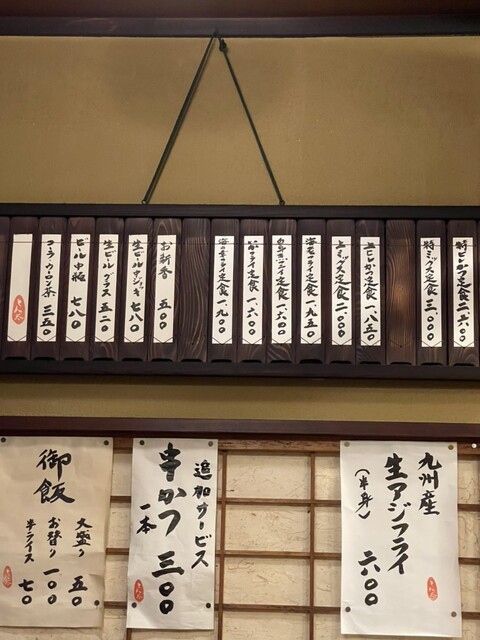 特ヒレかつ定食 二、六〇〇
特ミックス定食 三、〇〇〇
上ヒレかつ定食 一、八五〇
上ミックス定食 二、〇〇〇
海老フライ定食 一、九五〇
白身フライ定食 一、六〇〇
定食 一、六〇〇
海の幸フライ定食 一、九〇〇
お新香 五〇〇
生ビール中ジョッキ 七八〇
生ビールグラス 五二〇
ビール中瓶 七八〇
コーラ・ウーロン茶 三五〇
九州産
生アジフライ
(半身) 六〇〇
追加サービス
串かつ 三〇〇
一本
御飯
大盛り 五〇
お替り 一〇〇
半ライス 七〇